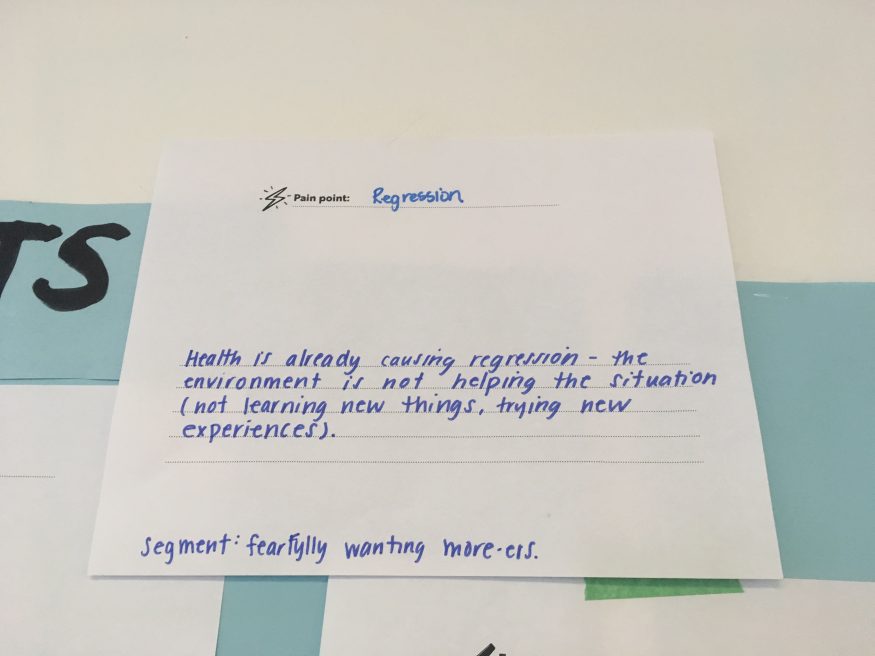 TS
Pain point: Regression
Health is already causing regression - the
environment is not helping the situation
(not learning new things, trying new
experiences).
Segment: fearfully wanting more-ers.